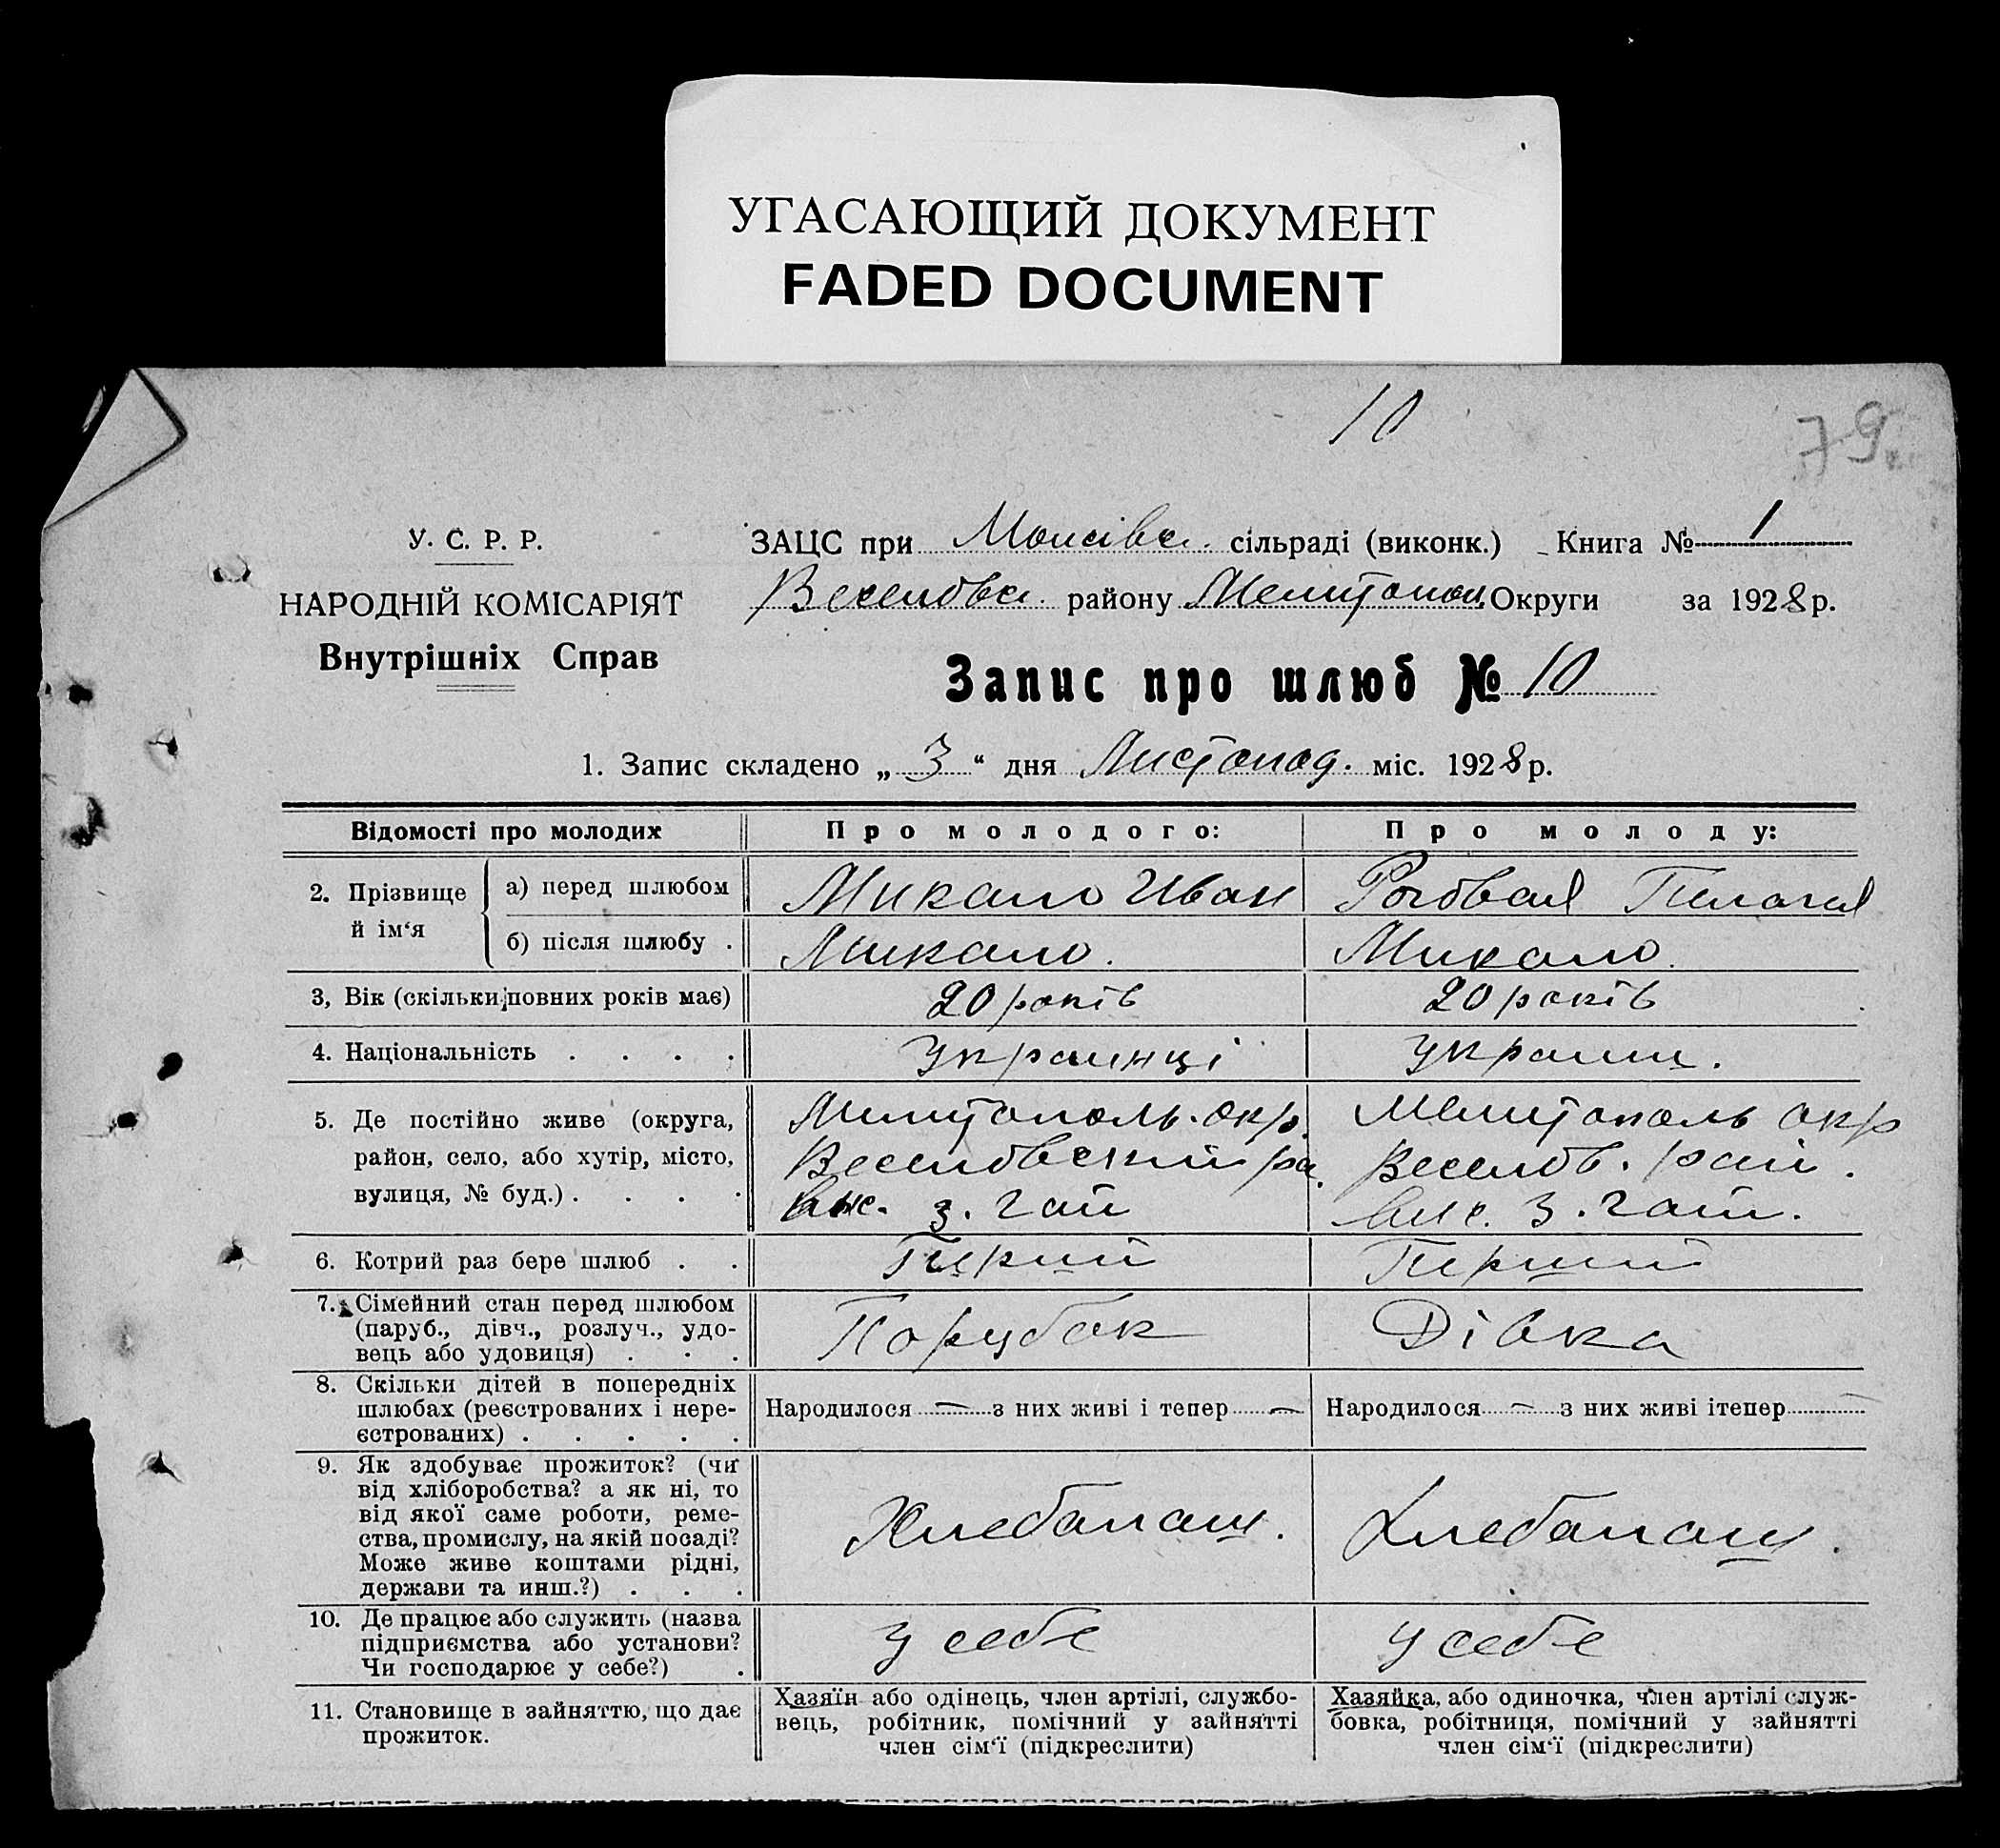 УГАСАЮЩИЙ ДОКУМЕНТ
FADED DOCUMENT
10
79.
У. С. Р. Р.
НАРОДНІЙ КОМІСАРІЯТ
Внутрішніх Справ
ЗАЦС при сільраді (виконк.) Книга № 1
Веселовск. району Мелитопол. Округи за 1928 р.
Запис про шлюб № 10
1. Запис складено „ 3 “ дня Листопад. міс. 1928 р.
Відомості про молодих
Про молодого:
Про молоду:
2. Прізвище й ім‘я
а) перед шлюбом
Микало Иван
Пелагея
б) після шлюбу .
Микало.
Микало.
3, Вік (скільки повних років має)
20 років
20 років
4. Національність . . . .
Украинці
Украин.
5. Де постійно живе (округа,
район, село, або хутір, місто,
вулиця, № буд.) . . . .
Мелитополь. окр.
Веселовский ра.
з. Гай
Мелитополь окр
Веселов. рай.
З. Гай.
6. Котрий раз бере шлюб . .
Перший
Перший
7. Сімейний стан перед шлюбом
(паруб., дівч., розлуч., удо-
вець або удовиця) . . .
Парубак
Дівка
8. Скільки дітей в попередніх
шлюбах (реєстрованих і нере-
єстрованих) . . . . .
Народилося — з них живі і тепер —
Народилося — з них живі ітепер —
9. Як здобуває прожиток? (чи
від хліборобства? а як ні, то
від якої саме роботи, реме-
ства, промислу, на якій посаді?
Може живе коштами рідні,
держави та инш.?) . . .
Хлебапаш.
Хлебапаш.
10. Де працює або служить (назва
підприємства або установи?
Чи господарює у себе?) .
У себе
У себе
11. Становище в зайняттю, що дає
прожиток.
Хазяїн або одінець, член артілі, службо-
вець, робітник, помічний у зайнятті
член сім‘ї (підкреслити)
Хазяйка, або одиночка, член артілі служ-
бовка, робітниця, помічний у зайнятті
член сім‘ї (підкреслити)